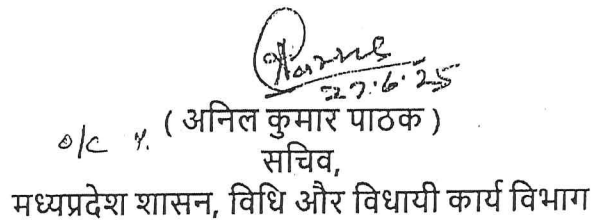 27.6.25
( अनिल कुमार पाठक )
o/c
सचिव,
मध्यप्रदेश शासन, विधि और विधायी कार्य विभाग